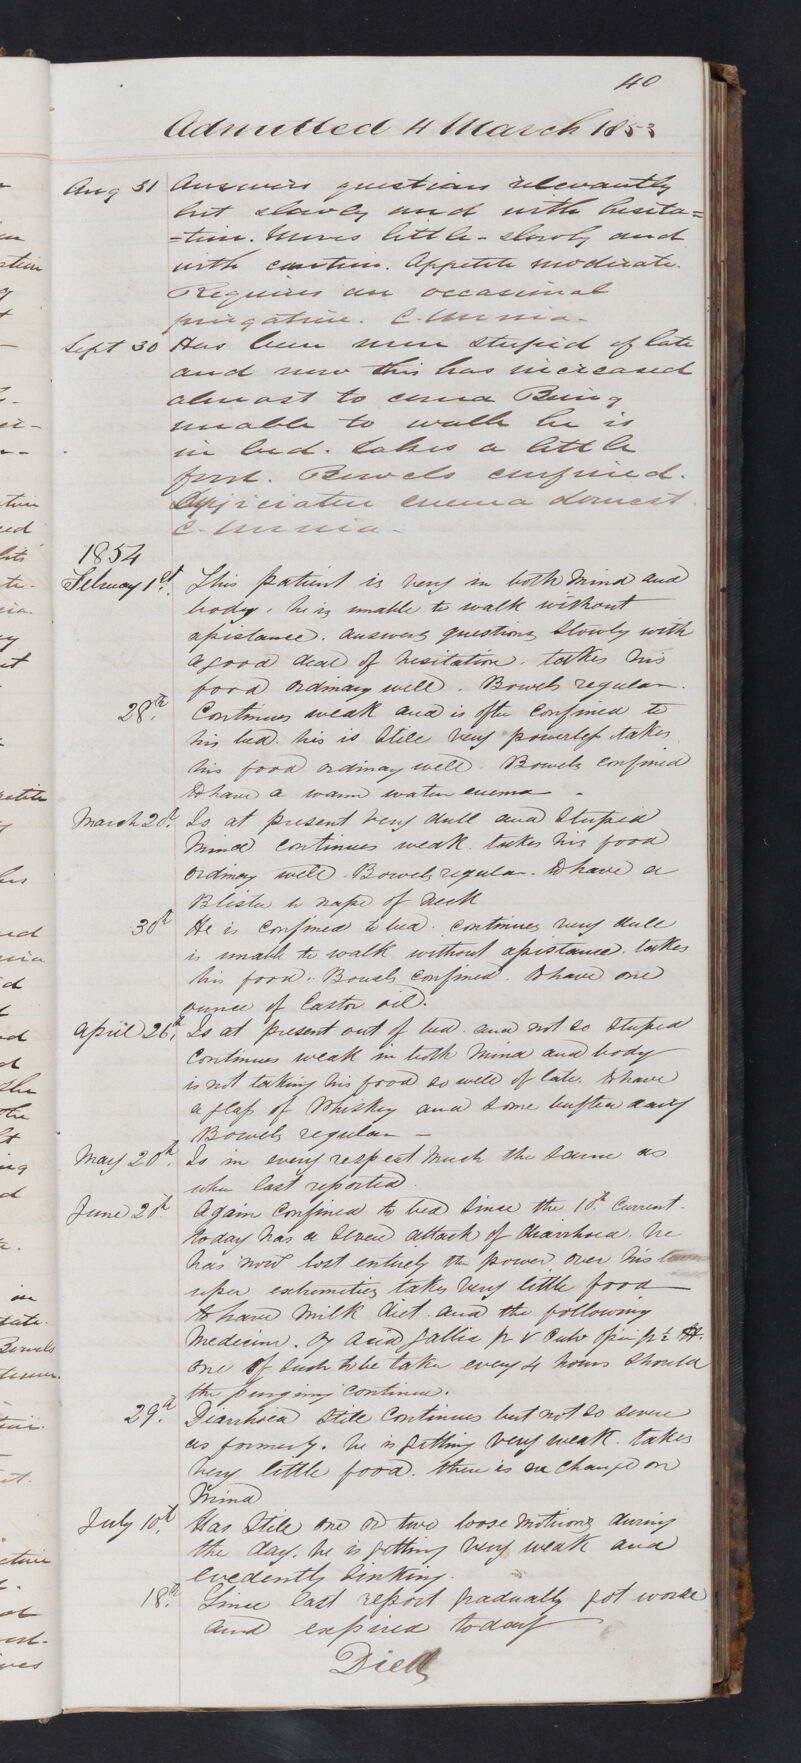 40
Admitted 4 March 1853
Aug 31 Answers questions relevantly
but slowly and with hesita=
=tion. Moves little - slowly and
with caution. Appetite moderate.
Requires an occasional
purgative.
Sept 30 Has been more stupid of late
and now this has increased
almost to coma Being
unable to walk he is
in bed. Takes a little
food. Bowels confined.
enema domest.
1854
February 1st. This patient is very in both mind and
body. he is unable to walk without
assistance. answers questions slowly with
a good deal of hesitation. takes his
food ordinary well. Bowels regular.
28th. Continues weak and is often confined to
his bed. his is still very powerless takes
his food ordinary well. Bowels confined
to have a warm water enema -
March 20th. Is at present very dull and stupid
mind continues weak. takes his food
ordinary well. Bowels regular. to have a
Blister to nape of neck
30th He is confined to bed. continues very dull
is unable to walk without assistance. takes
his food. Bowels confined. to have one
ounce of Castor oil.
April 26th. Is at present out of bed. and not so stupid
Continues weak in both mind and body
is not taking his food so well of late. to have
a glass of Whiskey and some daily
Bowels regular -
May 20th. Is in every respect much the same as
when last reported.
June 20th Again confined to bed since the 10th Current.
today has a severe attack of diarrhoea. he
has now lost entirely the power over his
uper extremities takes very little food
to have milk diet. and the following
Medicine. Acid Gallic gr V Pulv Opii gr ½
one of such to be taken every 4 hours should
the purging continue.
29th. Diarrhoea still continues but not so severe
as formerly. he is getting very weak. takes
very little food. there is no change on
mind
July 10th. Has still one or two loose motions during
the day. he is getting very weak and
evedently sinking.
18th. Since last report gradually got worse
and expired today
Died